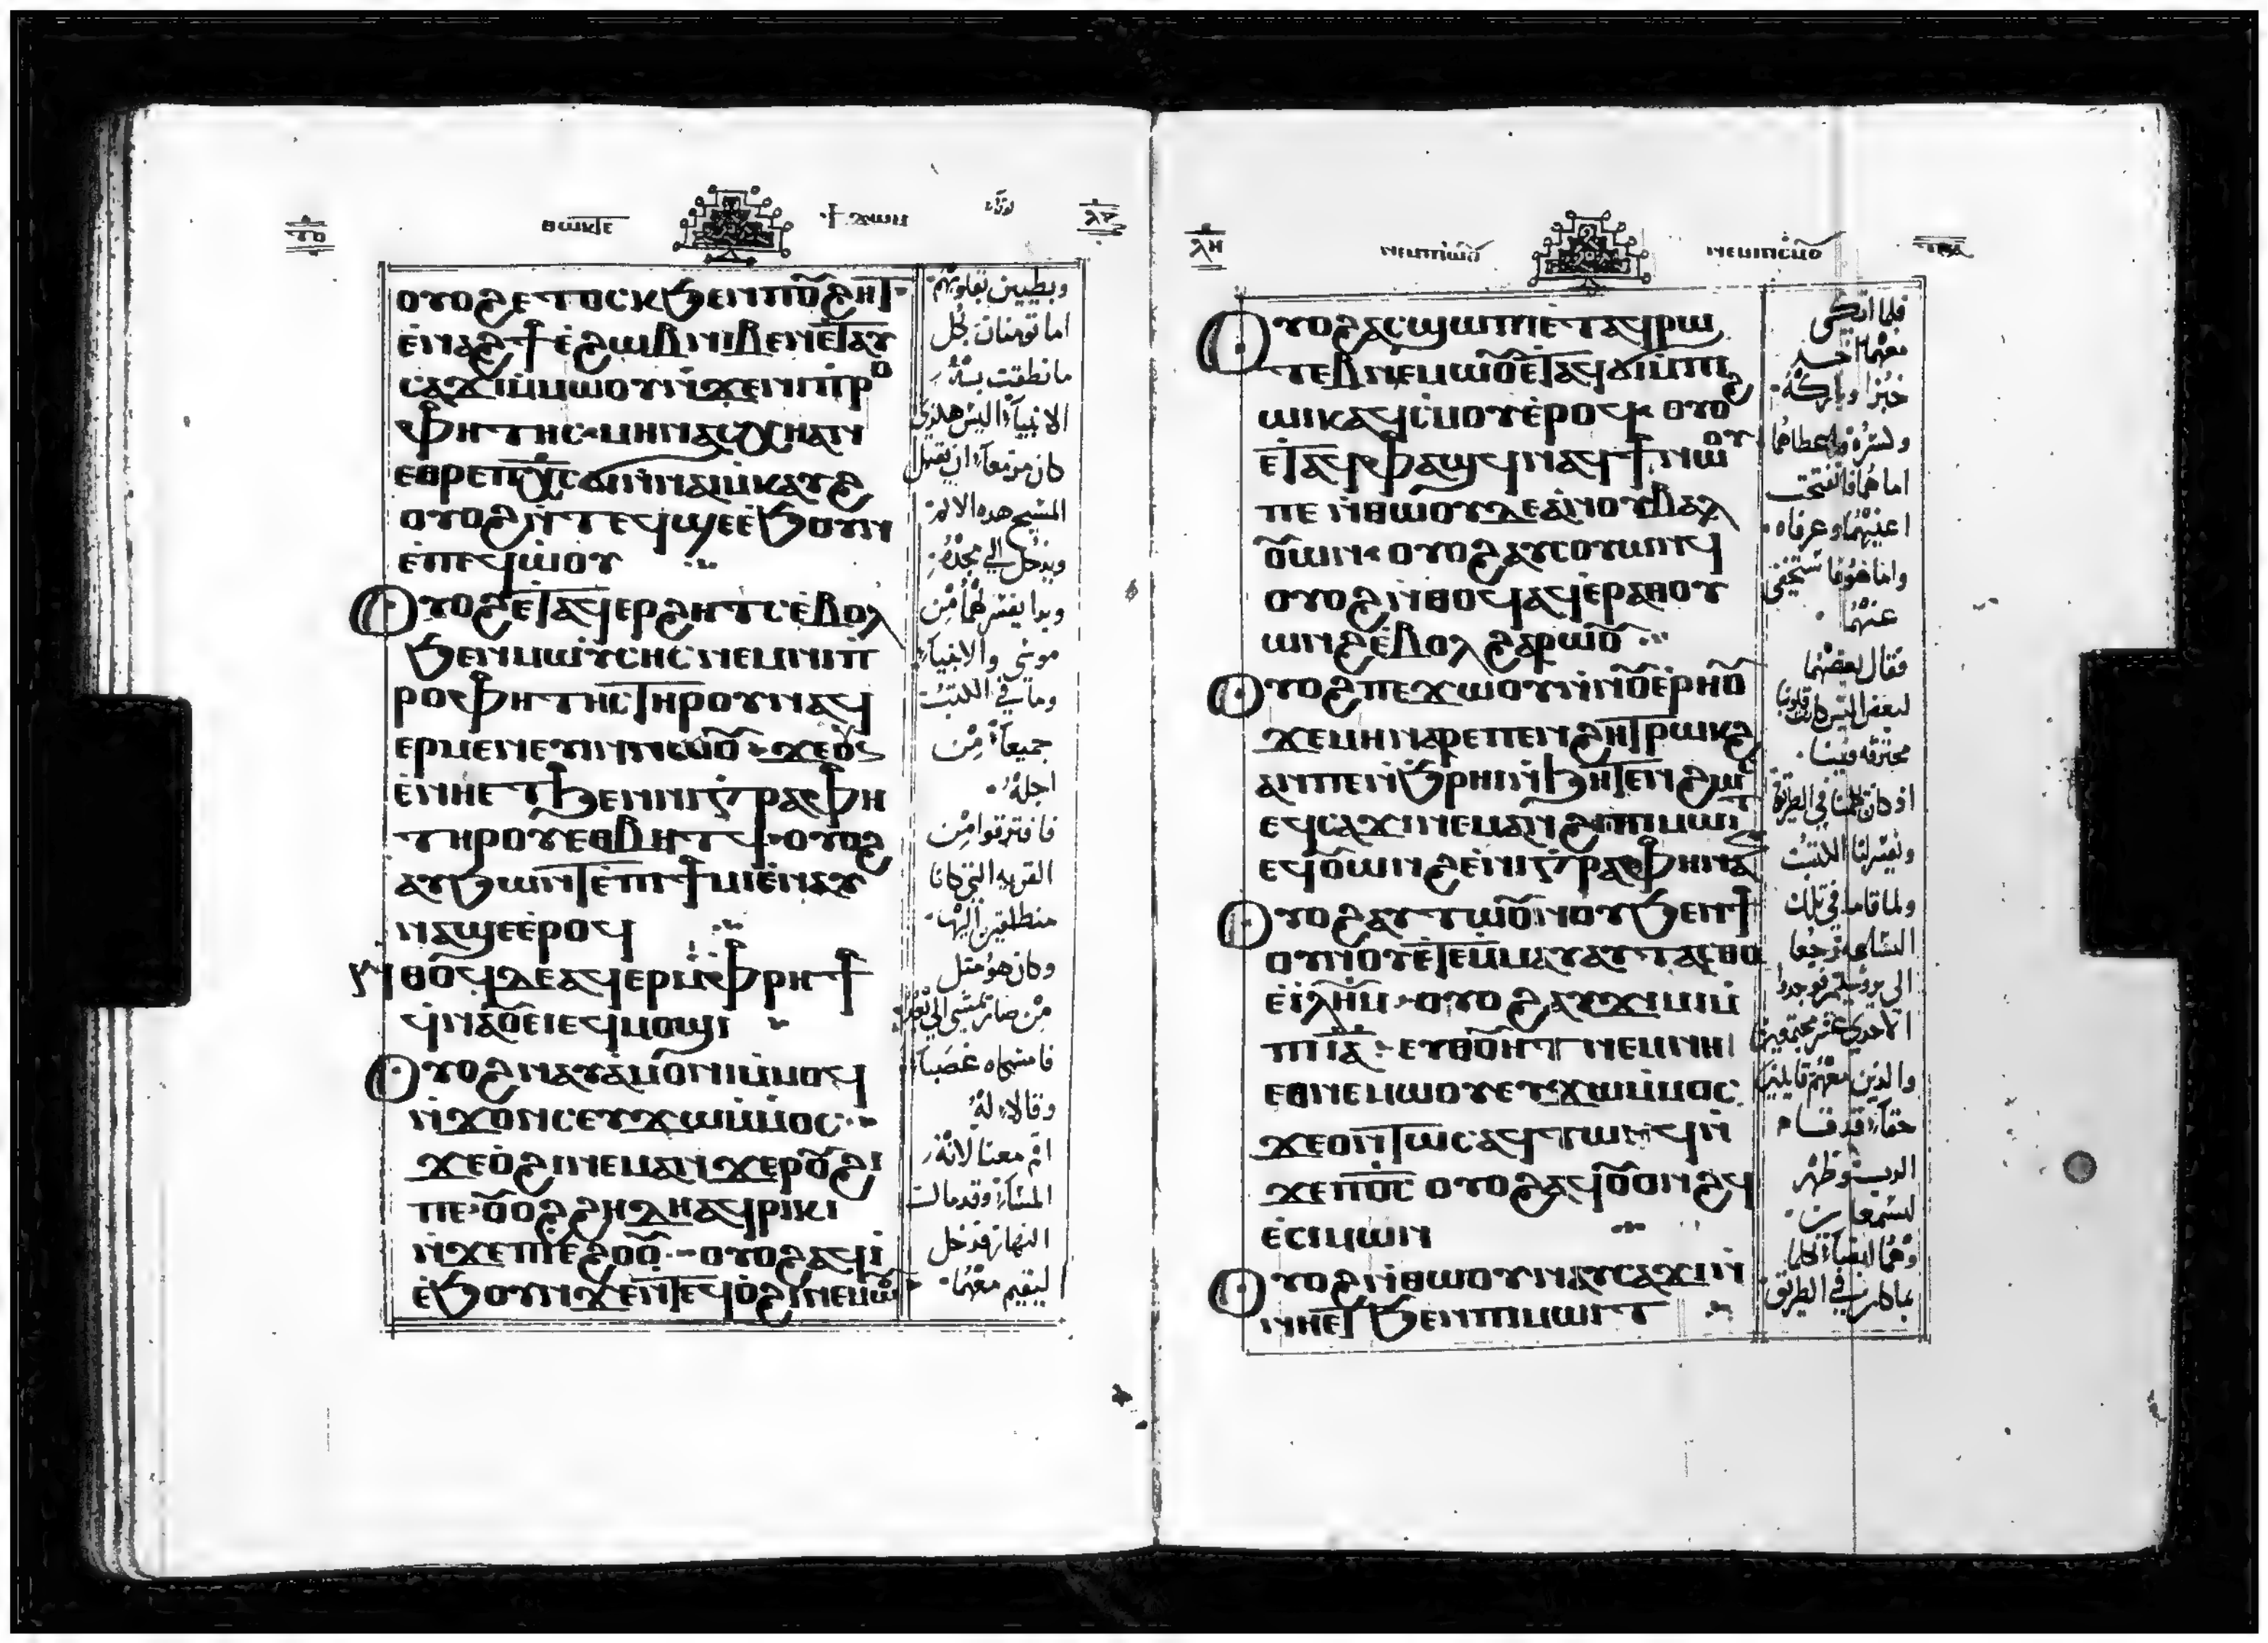 ⲟⲩⲟϩ ⲉⲧⲟⲥⲕ ϧⲉⲛ ⲡⲟⲩϩⲏⲧ
ⲉ̀ⲛⲁϩϯ ⲉ̀ϩⲱⲃ ⲛⲓⲃⲉⲛ ⲉ̀ⲧⲁⲩ
ⲥⲁϫⲓ ⲙ̀ⲙⲱⲟⲩ ⲛ̀ϫⲉ ⲛⲓⲡⲣⲟ
ⲫⲏⲧⲏⲥ ⲙⲏ ⲛⲁⲥϭⲏ ⲁⲛ
ⲉⲑⲣⲉ ⲡⲭ̅ⲥ̅ ϭⲓ ⲛ̀ⲛⲁⲓⲙ̀ⲕⲁⲩϩ
ⲟⲩⲟϩ ⲛ̀ⲧⲉϥϣⲉ ⲉ̀ϧⲟⲩⲛ
ⲉ̀ⲡⲉϥⲱ̀ⲟⲩ
ⲟⲩⲟϩ ⲉ̀ⲧⲁϥⲉⲣϩⲏⲧⲥ ⲉ̀ⲃⲟⲗ
ϧⲉⲛ ⲙⲱⲩ̀ⲥⲏⲥ ⲛⲉⲙ ⲛⲓⲡ̀
ⲣⲟⲫⲏⲧⲏⲥ ⲧⲏⲣⲟⲩ ⲛⲁϥ
ⲉⲣⲙⲉⲛⲉⲩⲓⲛ ⲛⲱⲟⲩ ϫⲉ ⲟⲩ
ⲉ̀ⲛⲏ ⲉⲧϧⲉⲛ ⲛⲓⲅⲣⲁⲫⲏ
ⲧⲏⲣⲟⲩ ⲉⲑⲃⲏⲧϥ ⲟⲩⲟϩ
ⲁⲩϧⲱⲛⲧ ⲉ̀ⲡⲓϯⲙⲓ ⲉ̀ⲛⲁⲩ
ⲛⲁϣⲉ ⲉ̀ⲣⲟϥ
ⲛ̀ⲑⲟϥ ⲇⲉ ⲁϥⲉⲣ ⲙ̀ⲫⲣⲏϯ
ϥ̀ⲛⲁⲟⲩⲉⲓ ⲉϥⲙⲟϣⲓ
ⲟⲩⲟϩ ⲛⲁⲩⲁ̀ⲙⲟⲛⲓ ⲙ̀ⲙⲟϥ
ⲛ̀ϫⲟⲛⲥ ⲉⲩϫⲱ ⲙ̀ⲙⲟⲥ
ϫⲉ ⲟ̀ϩⲓ ⲛⲉⲙⲁⲛ ϫⲉ ⲣⲟⲩϩⲓ
ⲡⲉ ⲟⲩⲟϩ ϩⲏⲇⲏ ⲁϥⲣⲓⲕⲓ
ⲛ̀ϫⲉ ⲡⲓⲉ̀ϩⲟⲟⲩ ⲟⲩⲟϩ ⲁϥⲓ̀
ⲉ̀ϧⲟⲩⲛ ϫⲉ ⲛ̀ⲧⲉϥⲟ̀ϩⲓ ⲛⲉⲙⲱⲟⲩ
وبطيين بقلوبهم
اما تومنان بكل
ما نطقت به
الانبياء اليس هذي
كان مزمعا ان يقبل
المسيح هذه الالام
ويدخل الي مجده
وبدا يفسر لهما من
موسي والانبياء
وما في الكتب
جميعا من
اجله
فاقتربوا من
القريه التي كانا
منطلقين اليها
وكان هو مثل
من صار يمشي الي بعد
فامسكاه غصبا
وقالا له
اقم معنا لانه
المساء وقد مالت
النهار فدخل
ليقيم معهما
ⲟⲩⲟϩ ⲁⲥϣⲱⲡⲓ ⲉ̀ⲧⲁϥⲣⲱ
ⲧⲉⲃ ⲛⲉⲙⲱⲟⲩ ⲉ̀ⲧⲁϥϭⲓ ⲙ̀ⲡⲓ
ⲱⲓⲕ ⲁϥⲥ̀ⲙⲟⲩ ⲉ̀ⲣⲟϥ ⲟⲩⲟϩ
ⲉ̀ⲧⲁϥⲫⲁϣϥ ⲛⲁϥϯ ⲛⲱⲟⲩ
ⲡⲉ ⲛ̀ⲑⲱⲟⲩ ⲇⲉ ⲁ̀ⲛⲟⲩⲃⲁⲗ
ⲟⲩⲱⲛ ⲟⲩⲟϩ ⲁⲩⲥⲟⲩⲱⲛϥ
ⲟⲩⲟϩ ⲛ̀ⲑⲟϥ ⲁϥⲉ̀ⲣⲁⲑⲟⲩ
ⲱⲛϩ ⲉ̀ⲃⲟⲗ ϩⲁⲣⲱⲟⲩ
ⲟⲩⲟϩ ⲡⲉϫⲱⲟⲩ ⲛ̀ⲛⲟⲩⲉ̀ⲣⲏⲟⲩ
ϫⲉ ⲙⲏ ⲛⲁⲣⲉ ⲡⲉⲛϩⲏⲧ ⲣⲱⲕϩ
ⲁⲛ ⲡⲉ ⲛ̀ϧⲣⲏⲓ ⲛ̀ϧⲏⲧⲉⲛ ϩⲱⲥ
ⲉϥⲥⲁϫⲓ ⲛⲉⲙⲁⲛ ϩⲓ ⲡⲓⲙⲱⲓⲧ
ⲉϥⲟⲩⲱⲛϩ ⲉ̀ⲛⲓⲅⲣⲁⲫⲏ ⲛⲁⲛ
ⲟⲩⲟϩ ⲁⲩⲧⲱⲟⲩⲛⲟⲩ ϧⲉⲛ ϯ
ⲟⲩⲛⲟⲩ ⲉ̀ⲧⲉⲙ̀ⲙⲁⲩ ⲁⲩⲧⲁⲥⲑⲟ
ⲉ̀ⲓ̅ⲗ̅ⲏ̅ⲙ̅ ⲟⲩⲟϩ ⲁⲩϫⲓⲙⲓ ⲙ̀
ⲡⲓⲓ̅ⲁ̅ ⲉⲩⲑⲟⲩⲏⲧ ⲛⲉⲙ ⲛⲏ
ⲉⲑⲛⲉⲙⲱⲟⲩ ⲉⲩϫⲱ ⲙ̀ⲙⲟⲥ
ϫⲉ ⲟⲛⲧⲱⲥ ⲁϥⲧⲱⲛϥ ⲛ̀
ϫⲉ ⲡⲟ̅ⲥ̅ ⲟⲩⲟϩ ⲁϥⲟⲩⲟⲛϩϥ
ⲉ̀ⲥⲓⲙⲱⲛ
ⲟⲩⲟϩ ⲛ̀ⲑⲱⲟⲩ ⲛⲁⲩⲥⲁϫⲓ ⲛ̀
ⲛⲏ ⲉ̀ⲧ ϧⲉⲛ ⲡⲓⲙⲱⲓⲧ
فلما اتكي
معهما اخذ
خبزا وباركه
وكسره واعطاهما
اما هما فانفتحت
اعينهما وعرفاه
واما هو فاستخفي
عنهما
فقال بعضهما
لبعض اليس كانت قلوبنا
محترقه فينا
اذ كان يكلمنا في الطريق
ويفسر لنا الكتب
ولما قاما في تلك
الساعه ورجعا
الي يروشليم فوجدوا
الاحدي عشر مجتمعين
والذين معهم قايلين
حقا قد قام
الرب وظهر
لسمعان
وهما ايضا تكلما
بما كان في الطريق